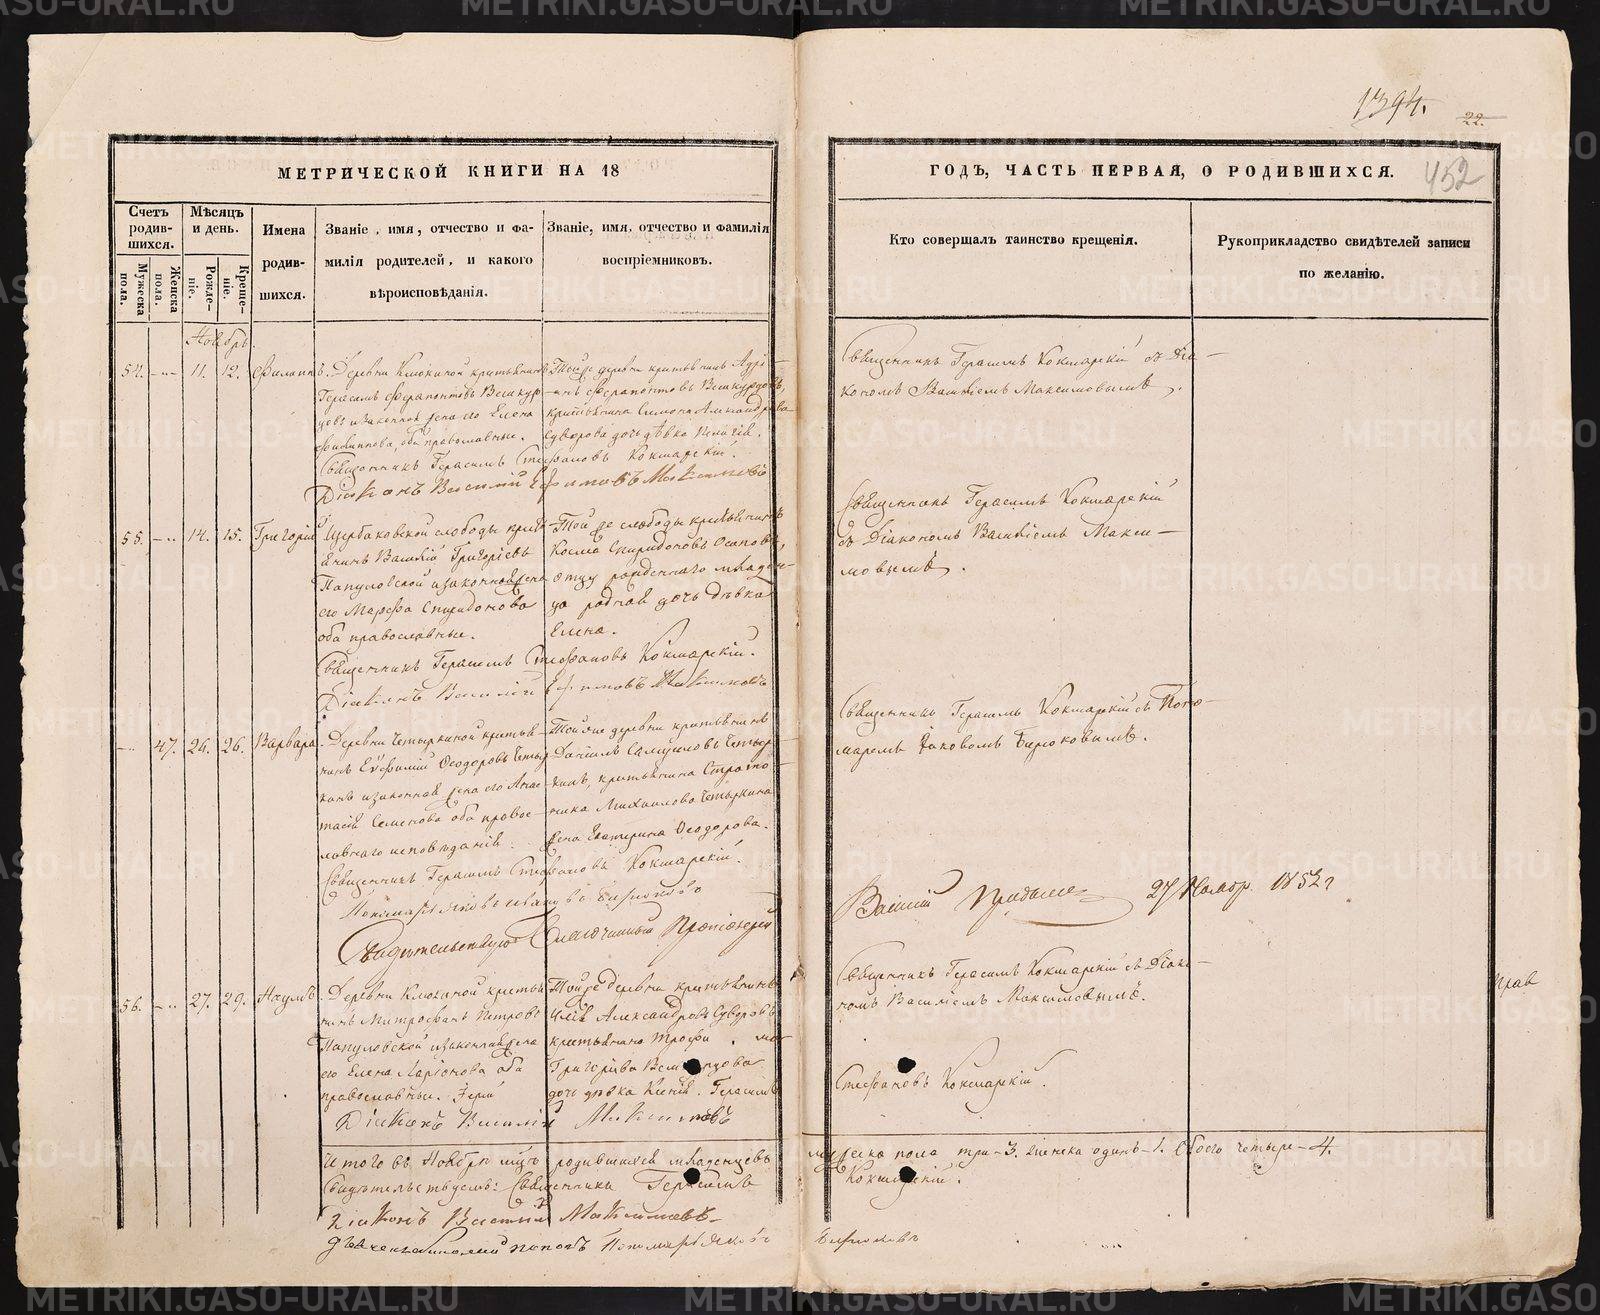 1394.
22.
452
МЕТРИЧЕСКОЙ КНИГИ НА 18
ГОДЪ, ЧАСТЬ ПЕРВАЯ, О РОДИВШИХСЯ.
Счетъ родив-шихся.
Мужеска пола.
Женска пола.
Мѣсяцъ и день.
Рожде-ніе.
Креще-ніе.
Имена родив-шихся.
Званіе, имя, отчество и фа-
милія родителей, и какого
вѣроисповѣданія.
Званіе, имя, отчество и фамилія
воспріемниковъ.
Кто совершалъ таинство крещенія.
Рукоприкладство свидѣтелей записи
по желанію.
Ноябрь.
54. 11. 12. Филиппъ.
Деревни Клюкиной крестьянинъ
Герасимъ Ферапонтовъ
и законная жена его Елена
Филиппова, оба православные.
Тойже деревни крестьянинъ
Ферапонтовъ
крестьянина Симона Александрова
Суворова дочь дѣвка
Священникъ Герасимъ Стефановъ Кокшарскій.
Діаконъ Василий Ефимовъ Максимовъ
Священникъ Герасимъ Кокшарскій съ Діа-
кономъ Василіемъ Максимовымъ.
55. 14. 15. Григорій
Щербаковской слободы кресть-
янинъ Василій Григорьевъ
Папуловской и законная жена
его Марфа Спиридонова
оба православные.
Той же слободы крестьянинъ
Косма Спиридоновъ Осиповъ,
отцу рожденнаго младен-
ца родная дочь дѣвка
Елена.
Священникъ Герасимъ Стефановъ Кокшарскій.
Діаконъ Василій Ефимовъ Максимовъ
Священникъ Герасимъ Кокшарскій
съ Діакономъ Василіемъ Макси-
мовымъ.
47. 26. 26. Варвара.
Деревни Четыркиной крестья-
нинъ Евфимій Ѳеодоровъ Четыр-
кинъ и законная жена его Анас-
тасія Семенова оба правос-
лавнаго исповѣданія.
Тойже деревни крестьянинъ
Даніилъ Самуиловъ Четыр-
кинъ, крестьянина Страто-
ника Михаилова Четыркина
жена Екатерина Ѳеодорова.
Священникъ Герасимъ Стефановъ Кокшарскій.
Пономарь Яковъ Ивановъ Бирюковъ
Священникъ Герасимъ Кокшарскій съ Поно-
маремъ Іаковомъ Бирюковымъ.
Свидѣтельствую Благочинный Протоіерей
27 Ноябр. 1852 г
56. 27. 29. Наумъ.
Деревни Клюкиной крестья-
нинъ Митрофанъ Петровъ
Папуловской и законная жена
его Елена Ларіонова оба
православные.
Тойже деревни крестьянинъ
Илія Александровъ Суворовъ
крестьянина
Григорьева
дочь дѣвка Герасимъ
Стефановъ Кокшарскій.
Діаконъ Василій Максимовъ
Священникъ Герасимъ Кокшарскій съ Діако-
номъ Василіемъ Максимовымъ.
прав
Итого въ Ноябрѣ м-цѣ родившихся младенцевъ
мужеска пола три-3. женска одинъ-1. обоего четыре-4.
Свидѣтельствуемъ: Священникъ Герасимъ
Кокшарскій.
Діаконъ Василій Максимовъ
Пономарь Яковъ
Бирюковъ